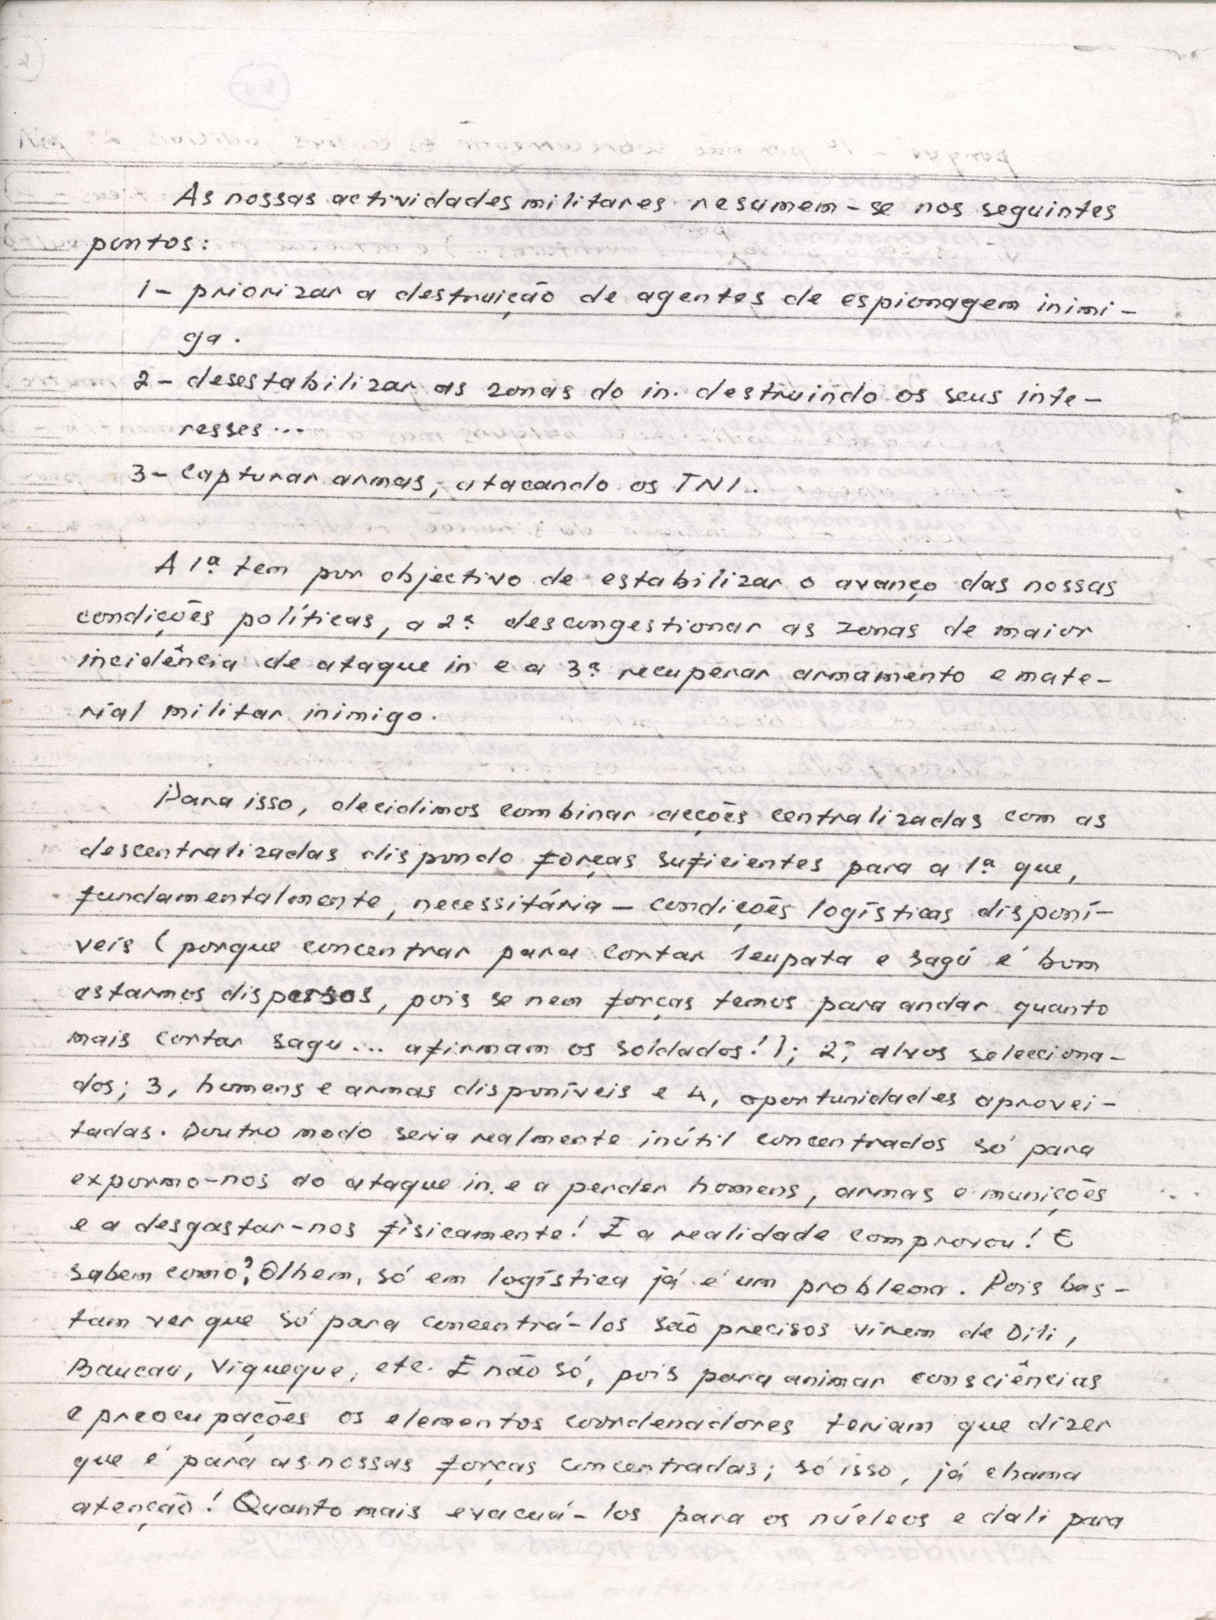 As nossas actividades militares resumem-se nos seguintes
pontos:
1- priorizar a destruição de agentes de espionagem inimi-
ga.
2- desestabilizar as zonas do in. destruindo os seus inte-
resses...
3- Capturar armas, atacando os TNI.
A 1ª tem por objectivo de estabilizar o avanço das nossas
condições políticas, a 2ª descongestionar as zonas de maior
incidência de ataque in e a 3ª recuperar armamento e mate-
rial militar inimigo.
Para isso, decidimos combinar acções centralizadas com as
descentralizadas dispondo forças suficientes para a 1ª que,
fundamentalmente, necessitária - condições logísticas disponí-
veis (porque concentrar para cortar leupata e sagú é bom
estarmos dispersos, pois se nem forças temos para andar quanto
mais cortar sagu... afirmam os soldados!); 2ª, alvos selecciona-
dos; 3, homens e armas disponíveis e 4, oportunidades aprovei-
tadas. Doutro modo seria realmente inútil concentrados só para
expormo-nos ao ataque in. e a perder homens, armas e munições
e a desgastar-nos fisicamente! E a realidade comprovou! E
sabem como? Olhem, só em logística já é um problema. Pois bas-
tam ver que só para concentrá-los são precisos virem de Dili,
Baucau, Viqueque, etc. E não só, pois para animar consciências
e preocupações os elementos coordenadores teriam que dizer
que é para as nossas forças concentradas; só isso, já chama
atenção! Quanto mais evacuá-los para os núcleos e dali para